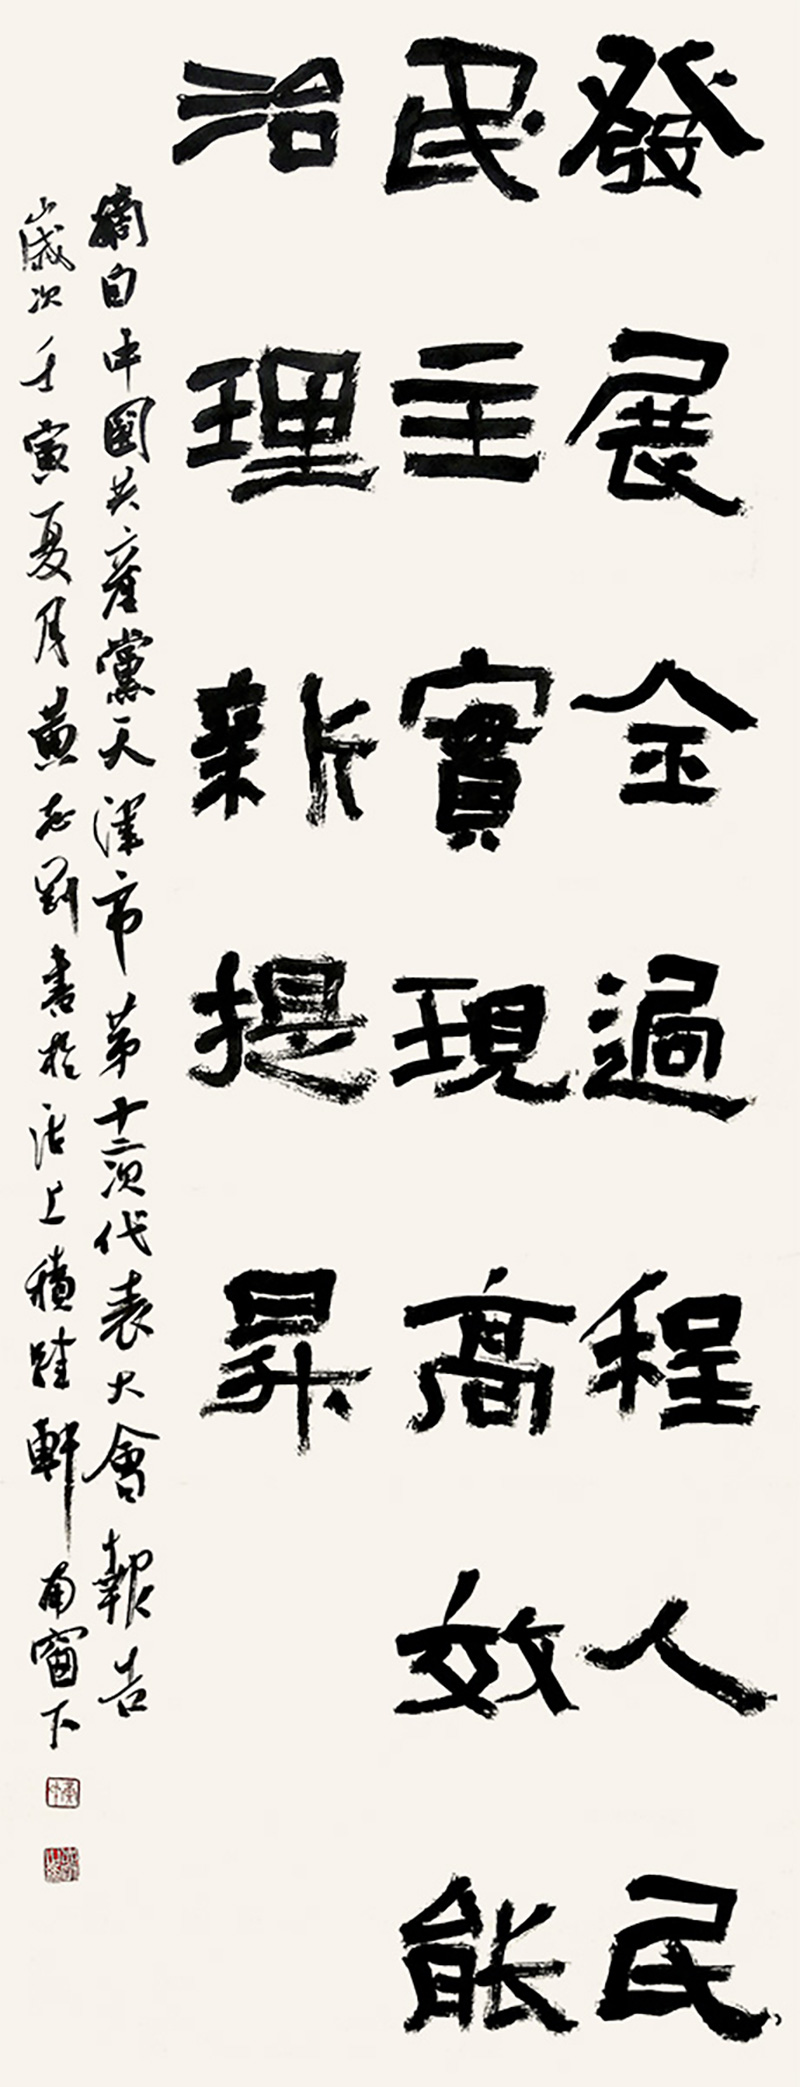 發展全過程人民
民主實現高效能
治理新提昇
摘自中國共產黨天津市第十二次代表大會報告
歲次壬寅夏月黃志剛書於沽上積跬軒南窗下